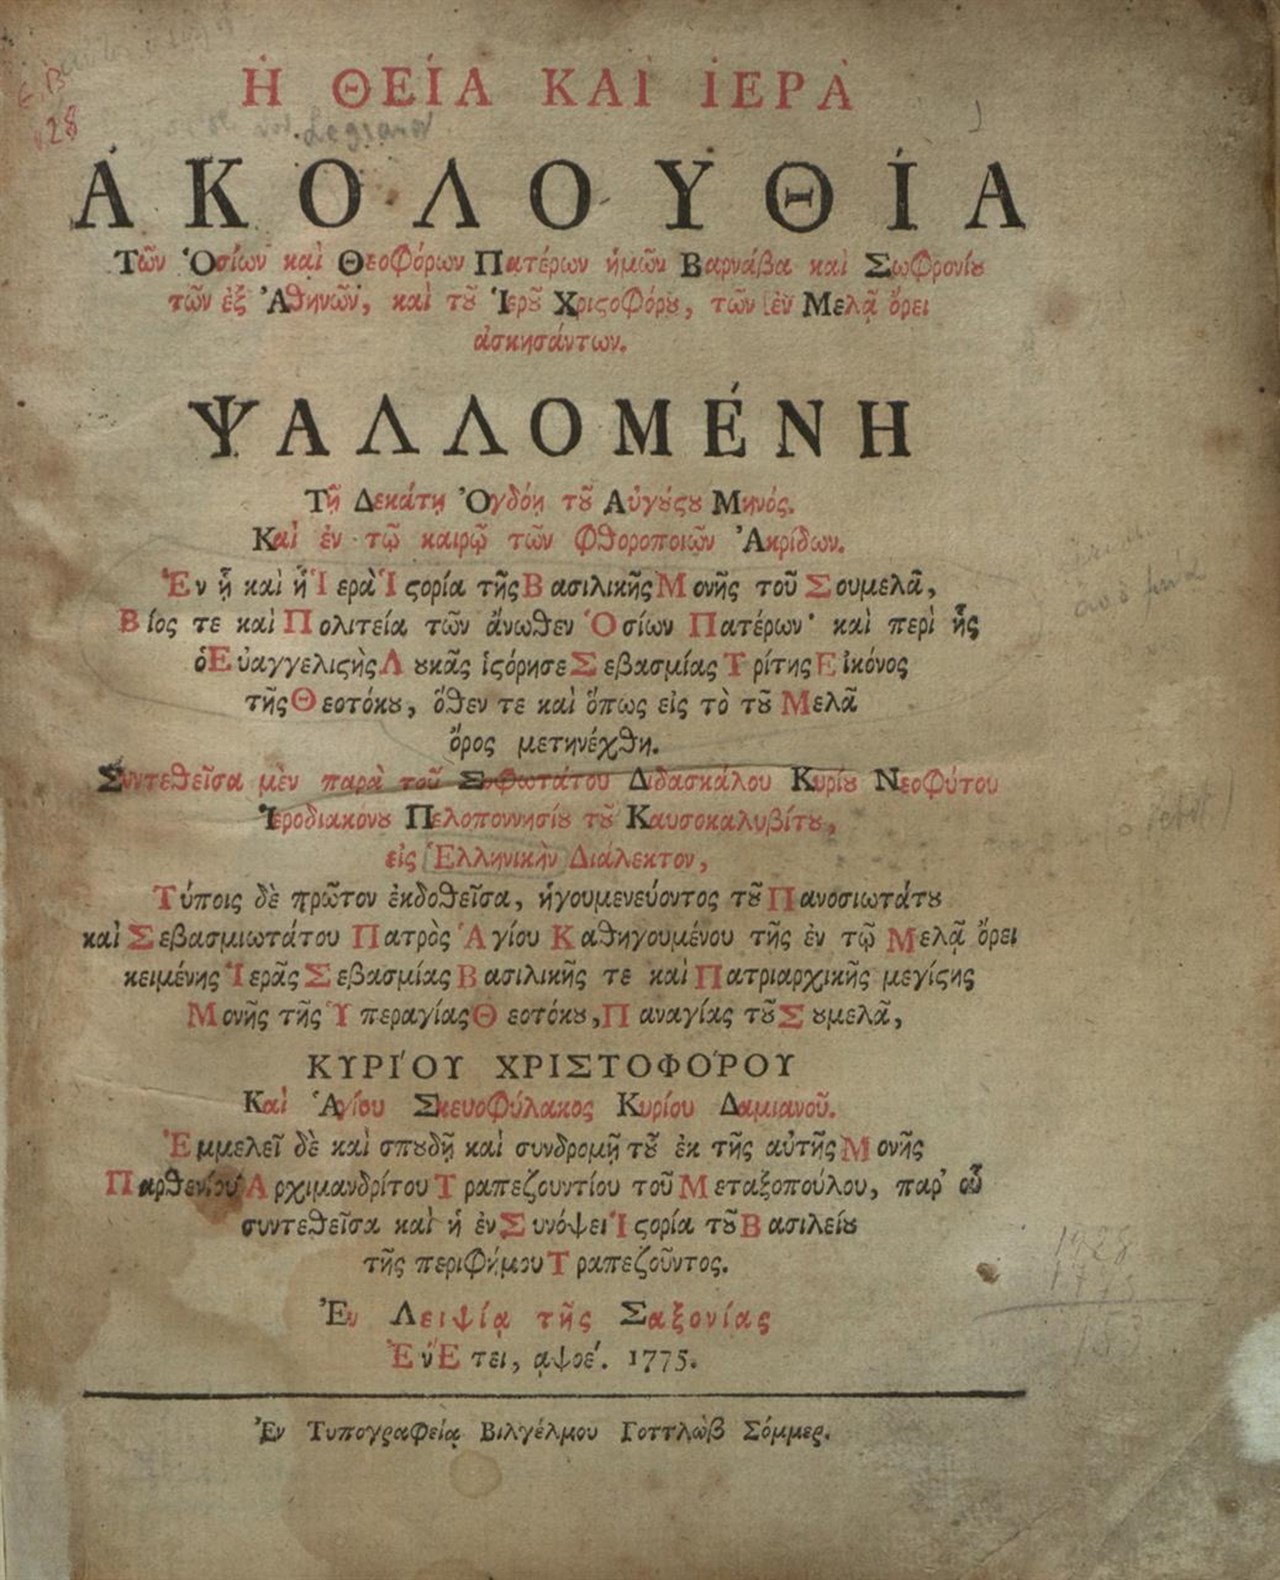 Ἡ ΘΕΊΑ ΚΑῚ ἹΕΡᾺ
ἈΚΟΛΟΥΘΊΑ
Τῶν Ὁσίων καὶ Θεοφόρων Πατέρων ἡμῶν Βαρνάβα καὶ Σωφρονίȣ
τῶν ἐξ Ἀθηνῶν, καὶ τȣ͂ Ἱερȣ͂ Χριϛοφόρȣ, τῶν ἐν Μελᾷ ὄρει
ἀσκησάντων.
ΨΑΛΛΟΜΈΝΗ
Τῇ Δεκάτῃ Ὀγδόῃ τȣ͂ Αὐγύϛȣ Μηνός.
Καὶ ἐν τῷ καιρῷ τῶν φθοροποιῶν Ἀκρίδων.
Ἐν ᾗ καὶ ἡ Ἱερὰ Ἱϛορία τῆς Βασιλικῆς Μονῆς τοῦ Σουμελᾶ,
Βίος τε καὶ Πολιτεία τῶν ἄνωθεν Ὁσίων Πατέρων· καὶ περὶ ἧς
ὁ Εὐαγγελιϛὴς Λουκᾶς ἱϛόρησε Σεβασμίας Τρίτης Εἰκόνος
τῆς Θεοτόκȣ, ὅθεν τε καὶ ὅπως εἰς τὸ τȣ͂ Μελᾶ
ὄρος μετηνέχθη.
Συντεθεῖσα μὲν παρὰ τοῦ Σοφωτάτου Διδασκάλου Κυρίȣ Νεοφύτου
Ἱεροδιακόνȣ Πελοποννησίȣ τȣ͂ Καυσοκαλυβίτȣ,
εἰς Ἑλληνικὴν Διάλεκτον,
Τύποις δὲ πρῶτον ἐκδοθεῖσα, ἡγουμενεύοντος τȣ͂ Πανοσιωτάτȣ
καὶ Σεβασμιωτάτου Πατρὸς Ἁγίου Καθηγουμένου τῆς ἐν τῷ Μελᾷ ὄρει
κειμένης Ἱερᾶς Σεβασμίας Βασιλικῆς τε καὶ Πατριαρχικῆς μεγίϛης
Μονῆς τῆς Ὑπεραγίας Θεοτόκȣ, Παναγίας τȣ͂ Σȣμελᾶ,
ΚΥΡΊΟΥ ΧΡΙΣΤΟΦΌΡΟΥ
Καὶ Ἁγίου Σκευοφύλακος Κυρίου Δαμιανοῦ.
Ἐμμελεῖ δὲ καὶ σπȣδῇ καὶ συνδρομῇ τȣ͂ ἐκ τῆς αὐτῆς Μονῆς
Παρθενίου Ἀρχιμανδρίτου Τραπεζουντίου τοῦ Μεταξοπούλου, παρ' οὗ
συντεθεῖσα καὶ ἡ ἐν Συνόψει Ἱϛορία τȣ͂ Βασιλείȣ
τῆς περιφήμου Τραπεζοῦντος.
Ἐν Λειψίᾳ τῆς Σαξονίας
Ἐν Ἔτει, αψοέ. 1775.
Ἐν Τυπογραφείᾳ Βιλγέλμου Γοττλὼβ Σόμμερ.
28
Legrand
1928
1775